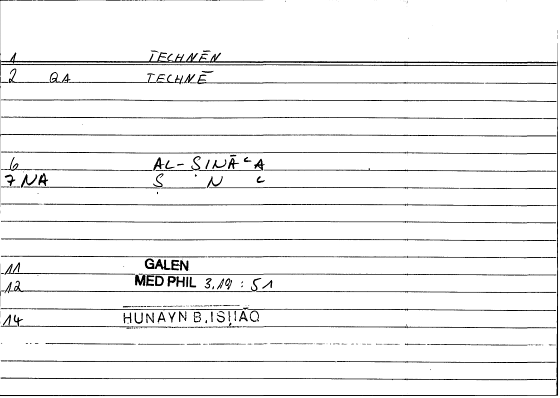 1 TECHNĒN
2 QA TECHNĒ
6 AL-ṢINĀʿA
7 NA Ṣ N ʿ
11 GALEN
12 MED PHIL 3.19 : 51
14 HUNAYN B.ISḤĀQ